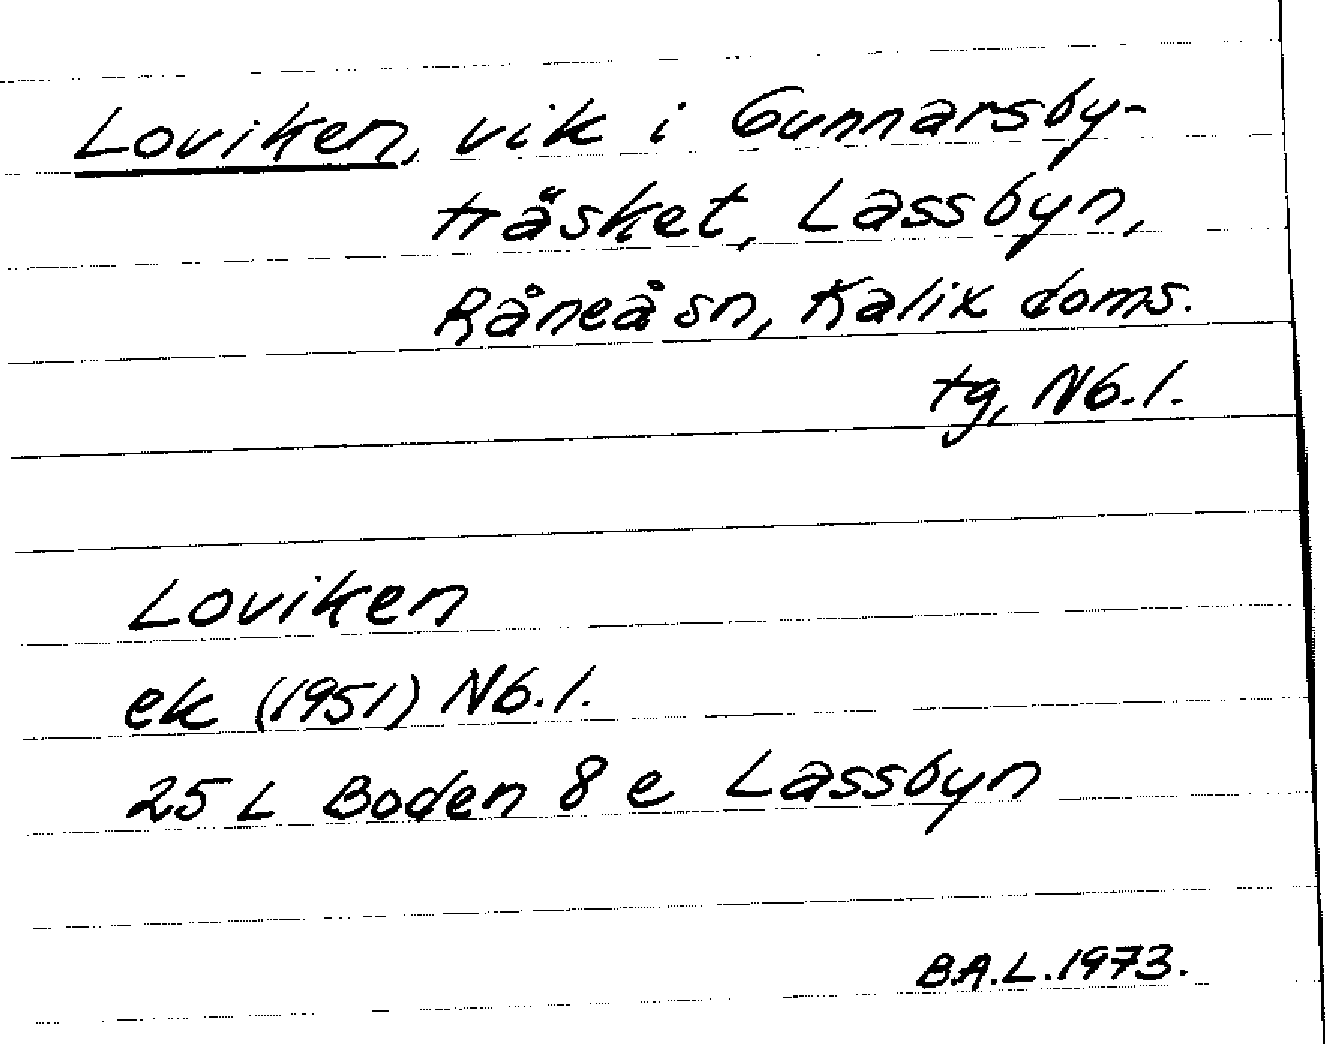 Loviken, vik i Gunnarsby-
träsket, Lassbyn,
Råneå sn, Kalix doms.
tg, Nb. l.
Loviken
ek (1951) Nb. l.
25 L Boden 8 e Lassbyn
B.A.L. 1973.